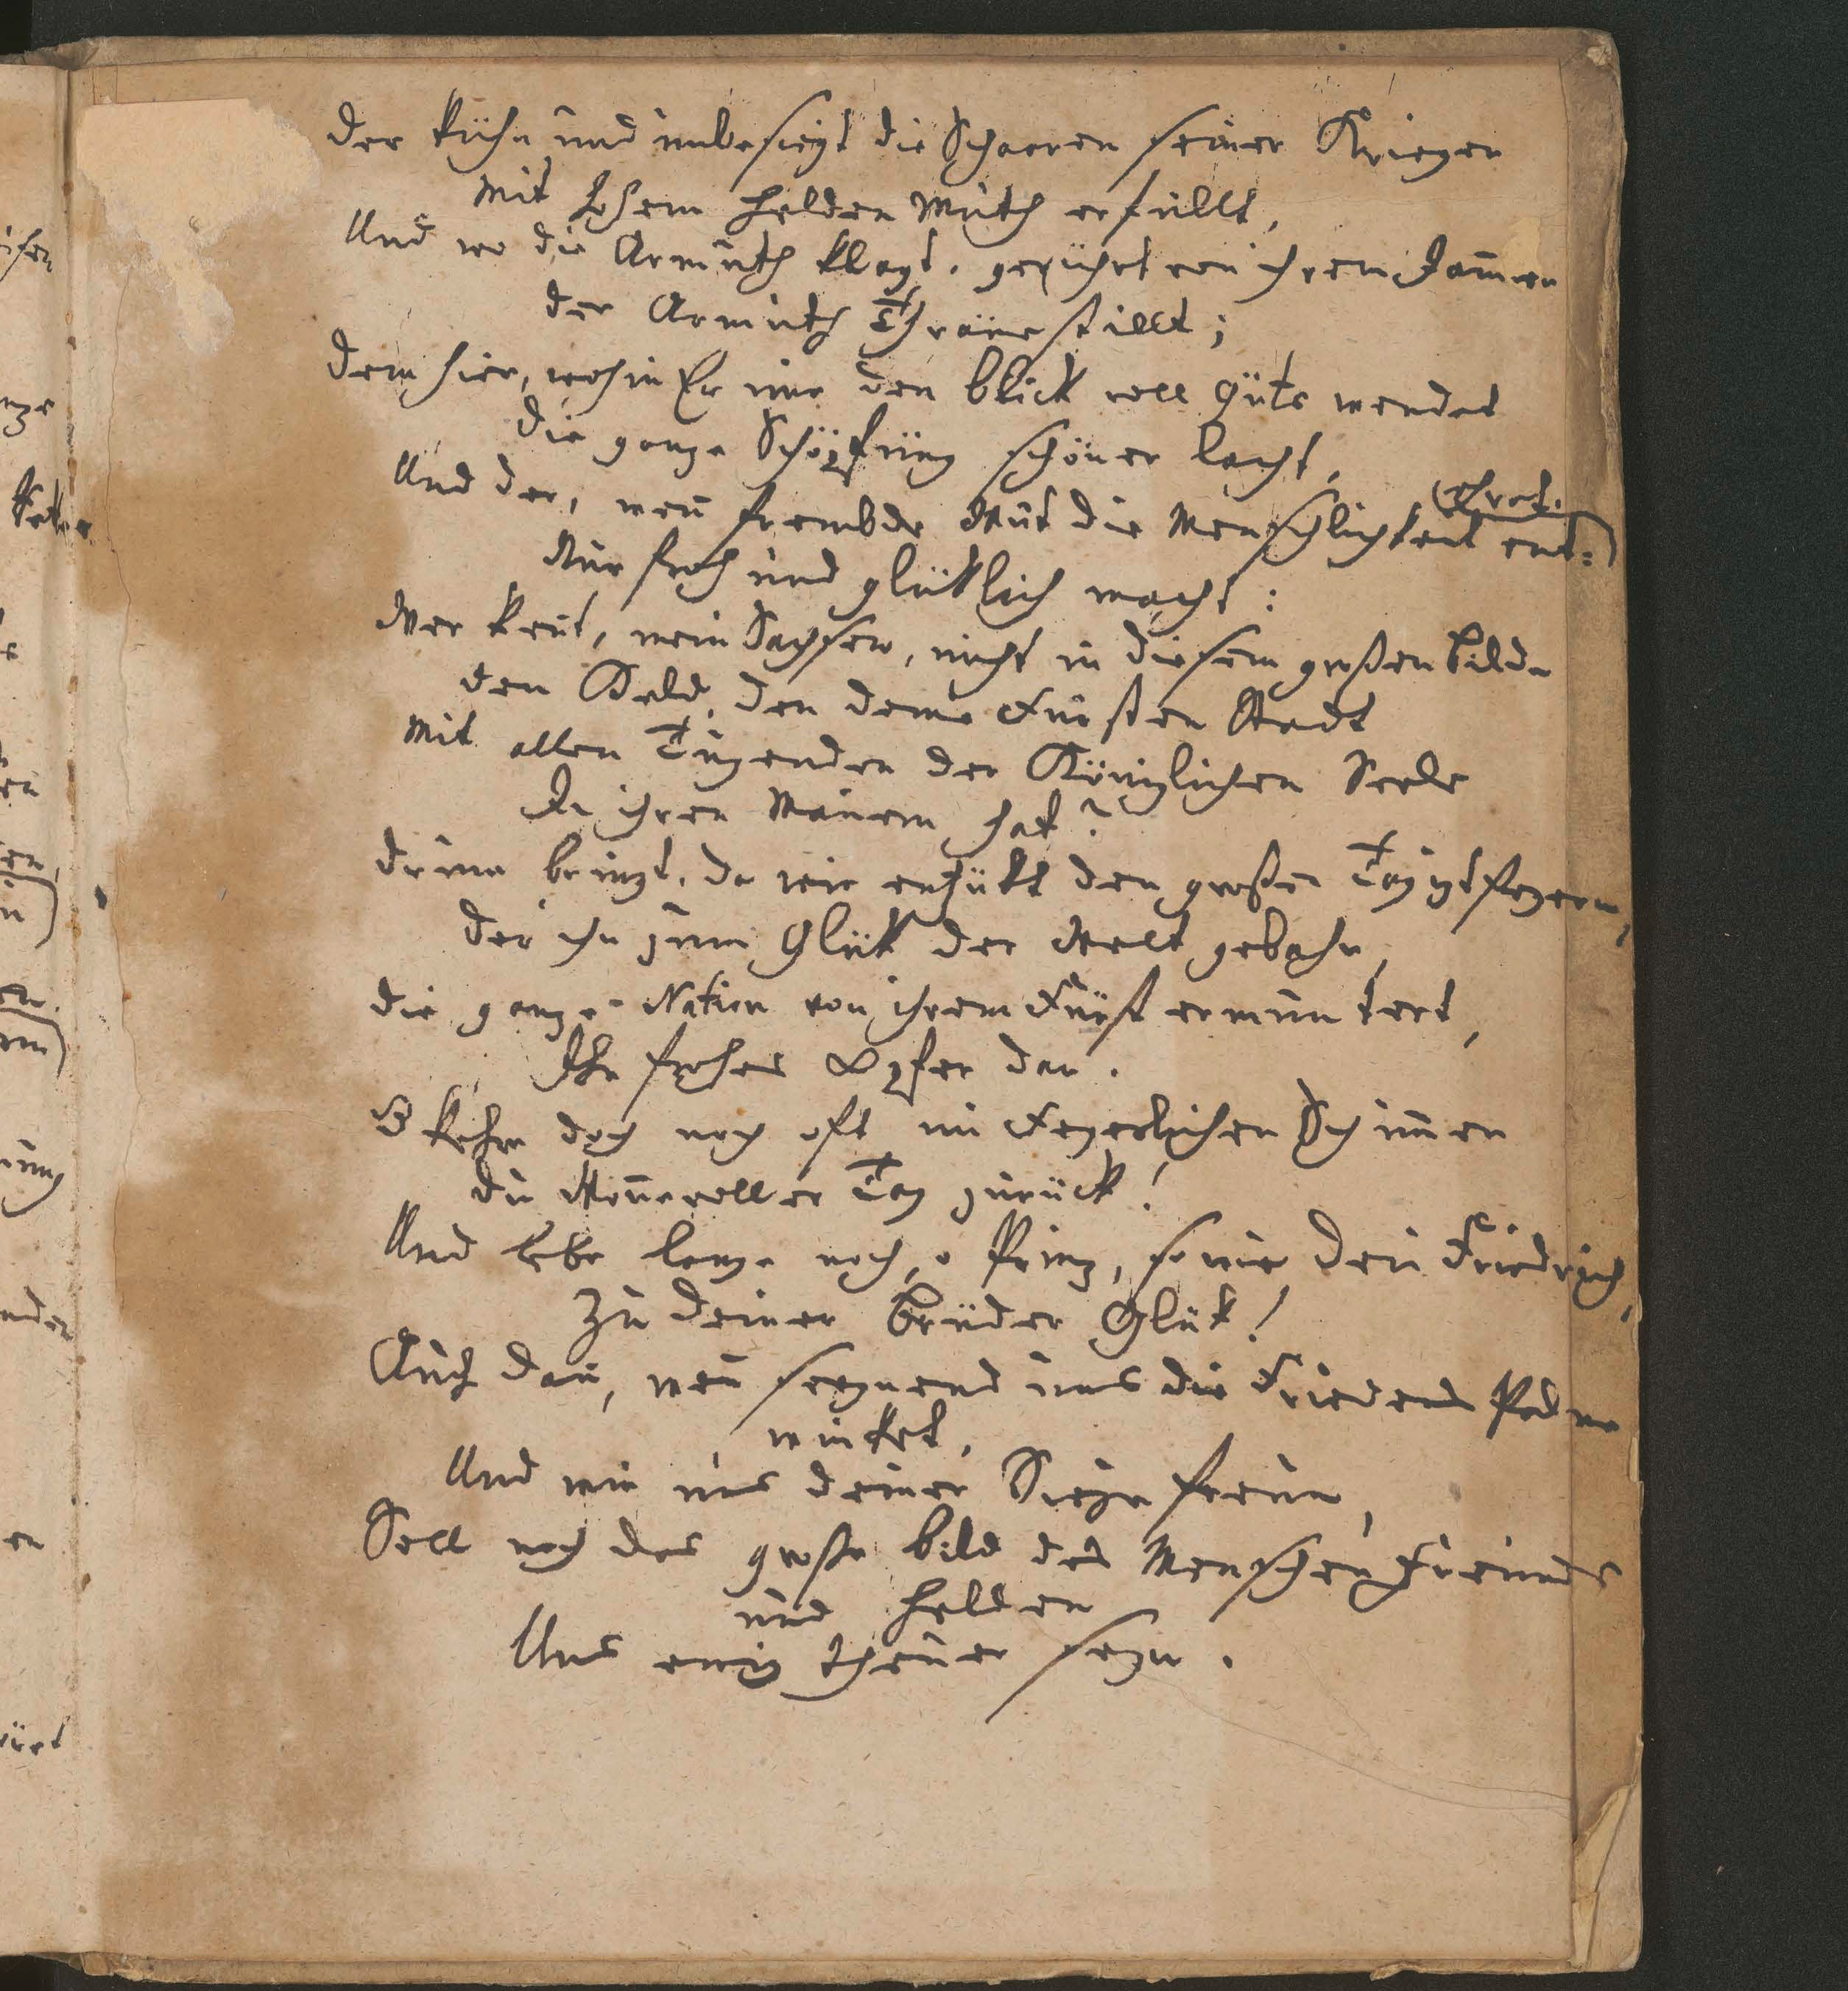 der kühn und unbesiegt die Schaaren seiner Krieger
Mit hohem Helden Muth erfüllt,
Und wo die Armuth klagt, gerührt von ihrem Jam̄er
der Armuth Thräne stillt;
dem hier, wohin Er nur den Blick voll Güte wendet
die ganze Schöpfung schöner lacht,
Und der, wen̄ frembde Wut die Menschlichkeit ent=
(ehret.
Nur froh und glüklich macht:
Wer kent, mein Sachsen, nicht in diesem großen Bilde
den Held, den deine Fürsten Stadt
Mit allen Tugenden der Königlichen Seele
In ihren Mauern hat?
drum bringt, da wir entzükt den großen Tag izt feyern,
der ihn zum Glük der Welt gebahr,
die ganze Nation von ihrem Fürst ermuntert,
Ihr frohes Opfer dar.
O kehre doch noch oft im Feyerlichen Schim̄er
du Won̄evoller Tag zurück!
Und lebe lange noch, o Prinz, so wie dein Friedrich,
Zu deiner Brüder Glük!
Auch dan̄, wen̄ seegnend uns die Friedens Palme
winket,
Und wir uns deiner Siege freun,
Soll noch das große Bild des Menschen Freundes
und Helden
Uns ewig theuer seyn.